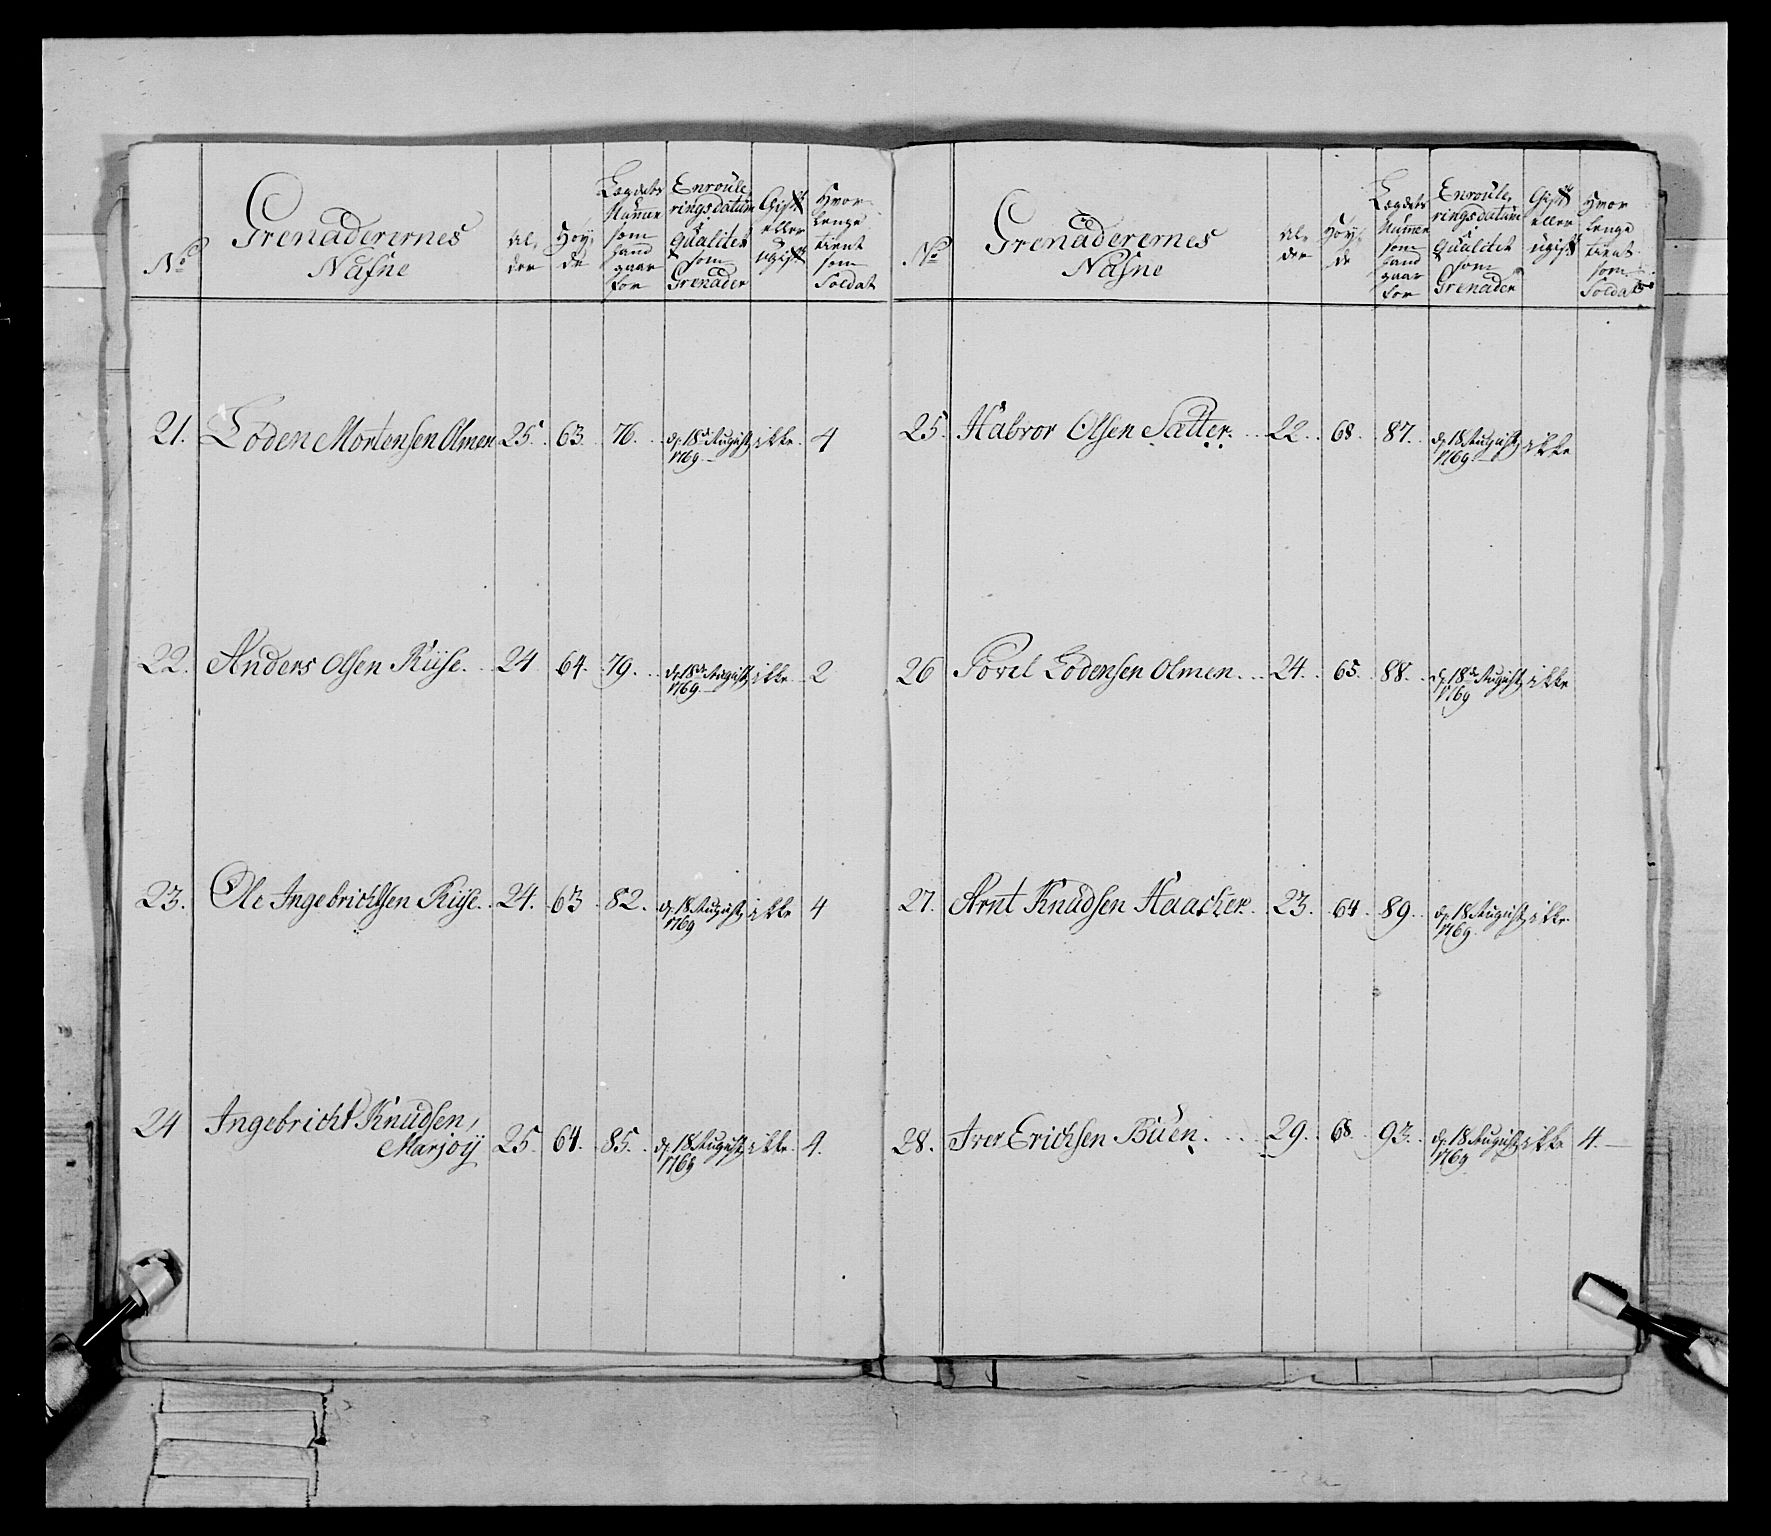 No
Grenaderernes
Nafne
al,
der
Høy,
de
Lægdets
Numer
som
hand
gaar
for
Enroule,
ringsdatum
i
Qualitet
som
Grenader
Gift
eller
ugift
Hvor
lenge
tient
som
Soldat
21. Loden Mortensen Olmen 25. 63. 76. d. 18de August ikke. 4
1769.
22. Anders Olsen Riise. 24 64. 79. d. 18de August ikke 2
1769.
23. Ole Ingebrichtsen Riise. 24. 63 82. d. 18 August ikke 4
1769
24 Ingebricht Knudsen,
Marjoÿ 25. 64. 85. d. 18 August ikke. 4.
1769
No
Grenaderernes
Nafne
al,
der
Høy,
de
Lægdets
Numer
som
hand
gaar
for
Enroule,
ringsdatum
i
Qualitet
som
Grenader
Gift
eller
ugift
Hvor
lenge
tient
som
Soldat
25. Halvor Olsen Sætter. 22. 68. 87. d. 18 August ikke
1769.
26 Povel Lodensen Olmen. 24. 65. 88. d. 18de August ikke
1769
27. Arnt Knudsen Haacker. 23. 64. 89. d. 18 August ikke.
1769.
28. Iver Erichsen Buen. 29. 68. 93. d. 18 August ikke 4.
1769